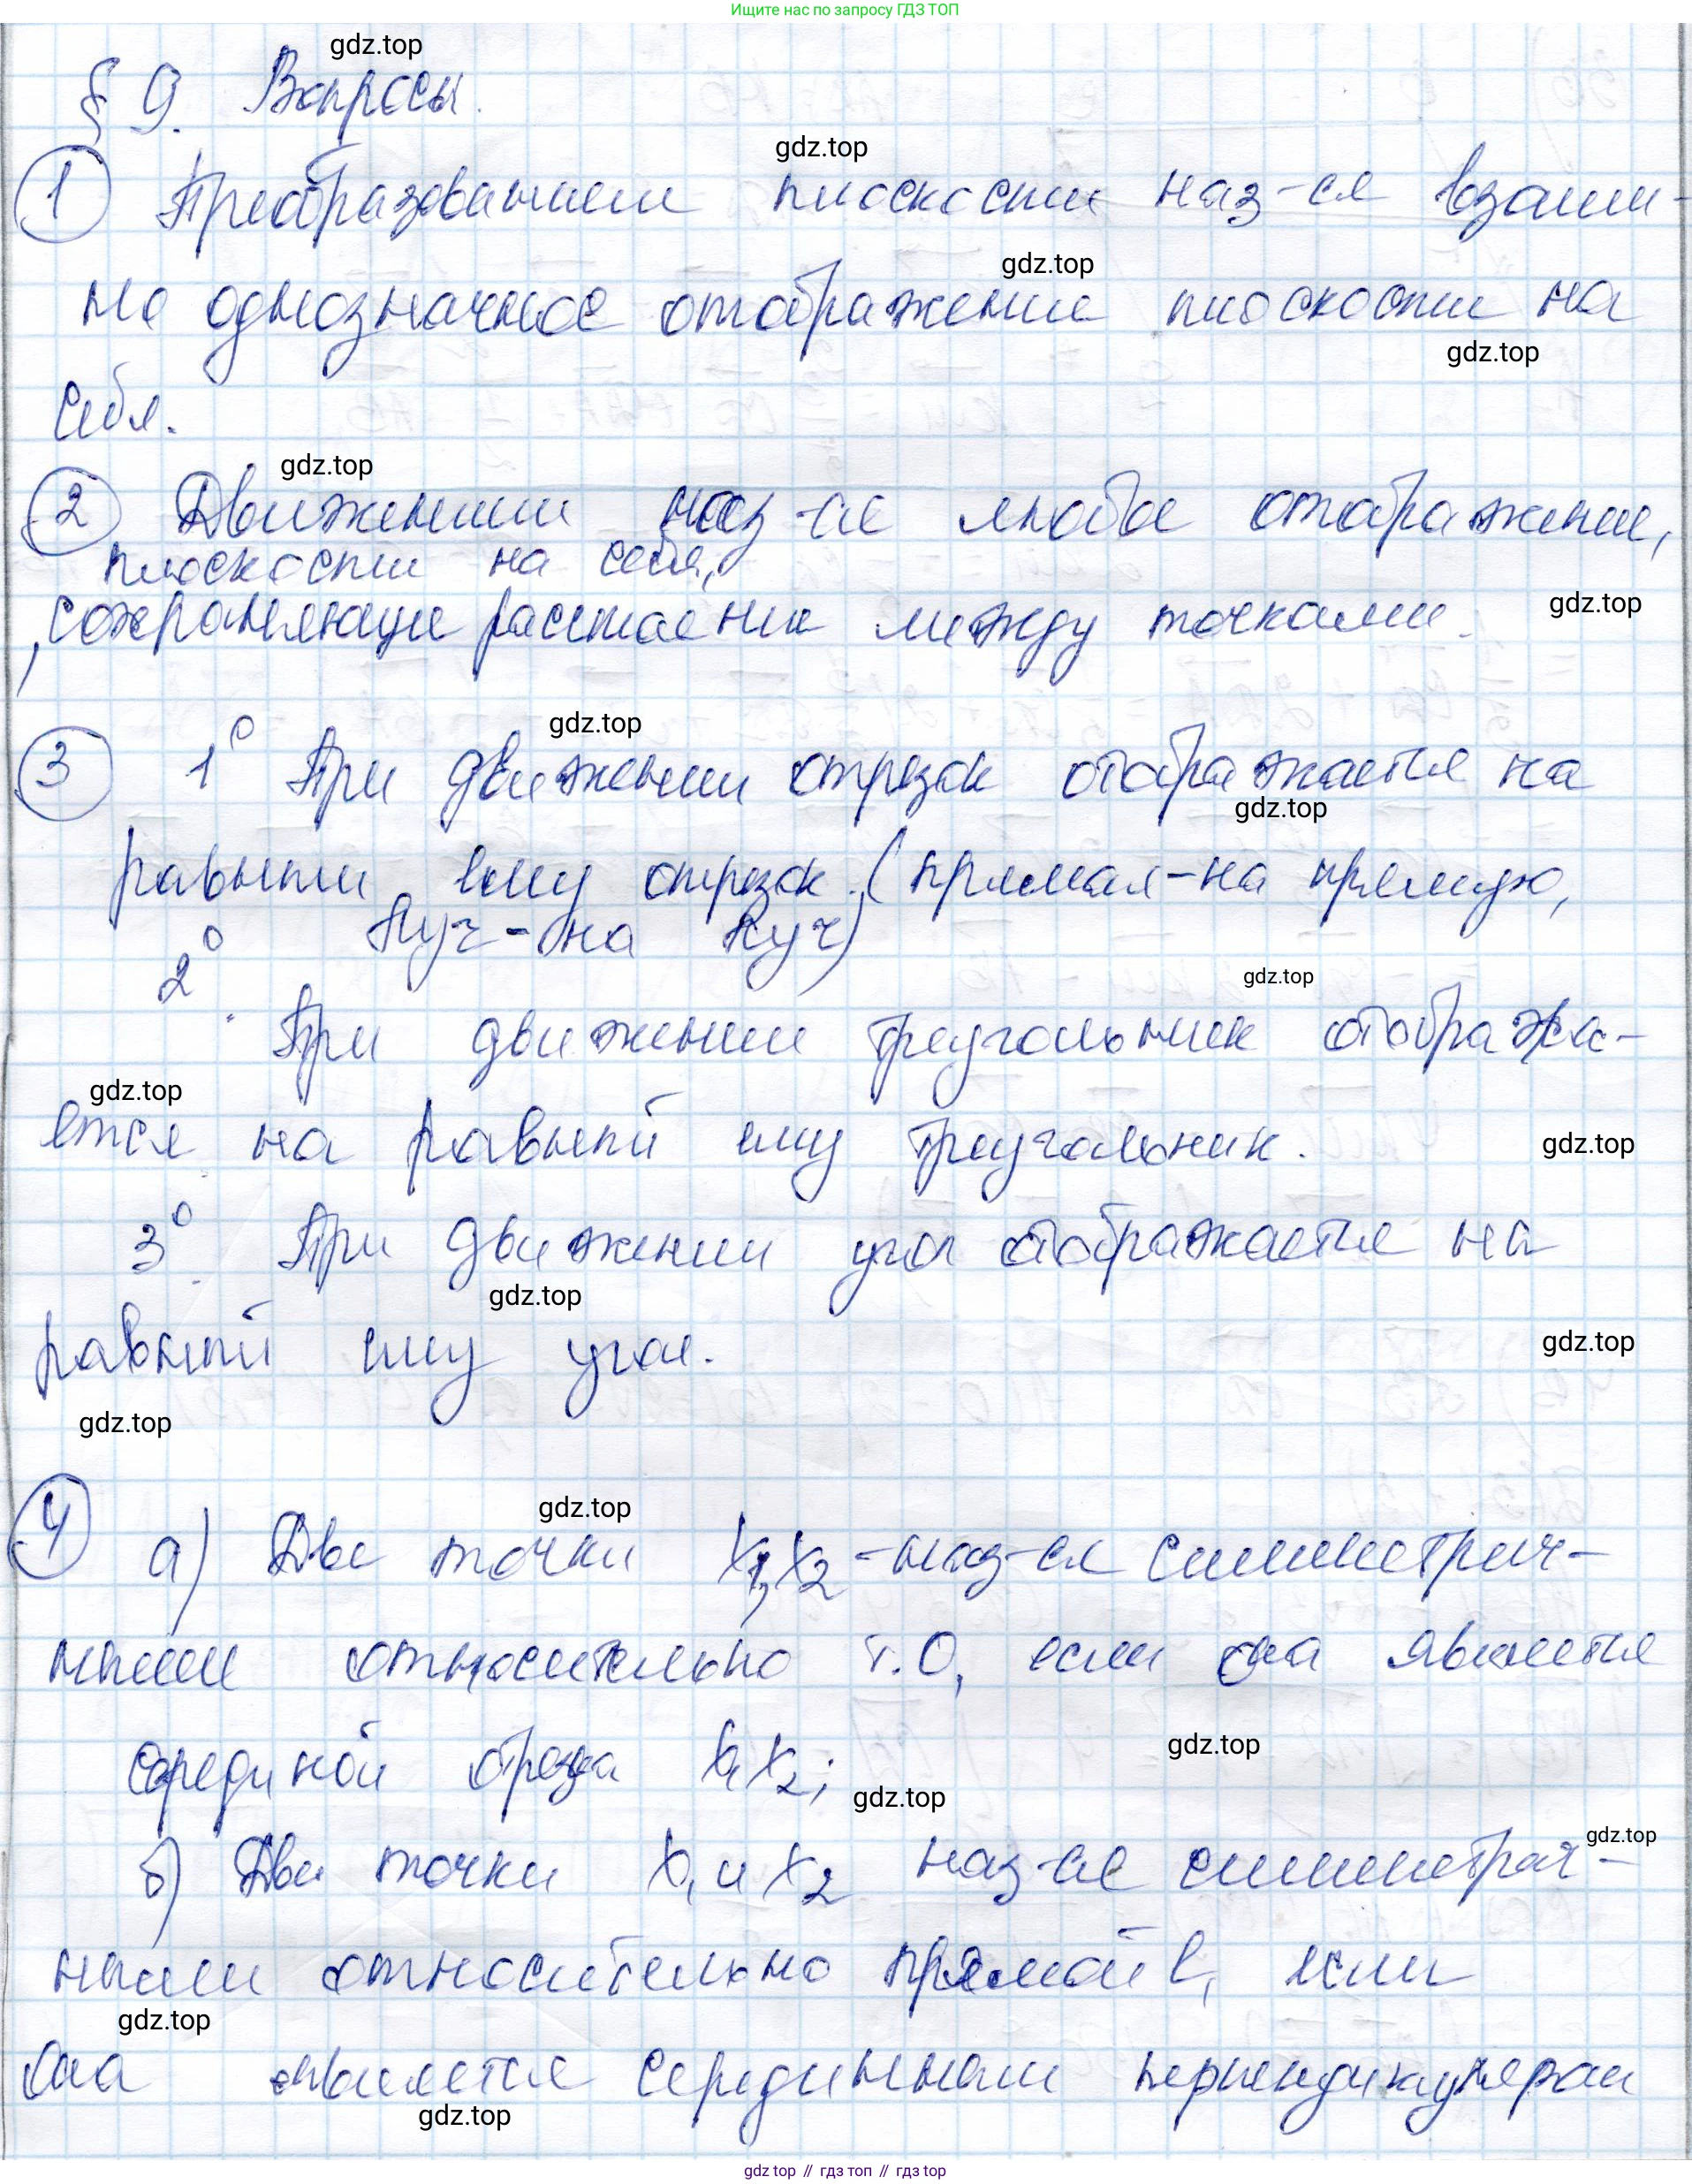 Ищите нас по запросу ГДЗ ТОП
gdz.top
§ 9. Вопросы.
gdz.top
① Преобразованием плоскости наз-ся взаим-
gdz.top
но однозначное отображение плоскости на
gdz.top
себя.
gdz.top
② Движением наз-ся любое отображение,
плоскости на себя,
сохраняющее расстояние между точками.
gdz.top
gdz.top
③ 1° При движении отрезок отображается на
gdz.top
равный ему отрезок. (прямая-на прямую,
луч-на луч)
2°
gdz.top
При движении треугольник отобража-
gdz.top
ется на равный ему треугольник.
gdz.top
3° При движении угол отображается на
gdz.top
равный ему угол.
gdz.top
gdz.top
gdz.top
④ а) Две точки X₁, X₂ -наз-ся симметрич-
ными относительно т.О, если она является
серединой отрезка X₁X₂;
gdz.top
gdz.top
gdz.top
б) Две точки X₁ и X₂ наз-ся симметрич-
ными относительно прямой l, если
gdz.top
она является серединным перпендикуляром
gdz.top
gdz top // гдз топ // гдз top